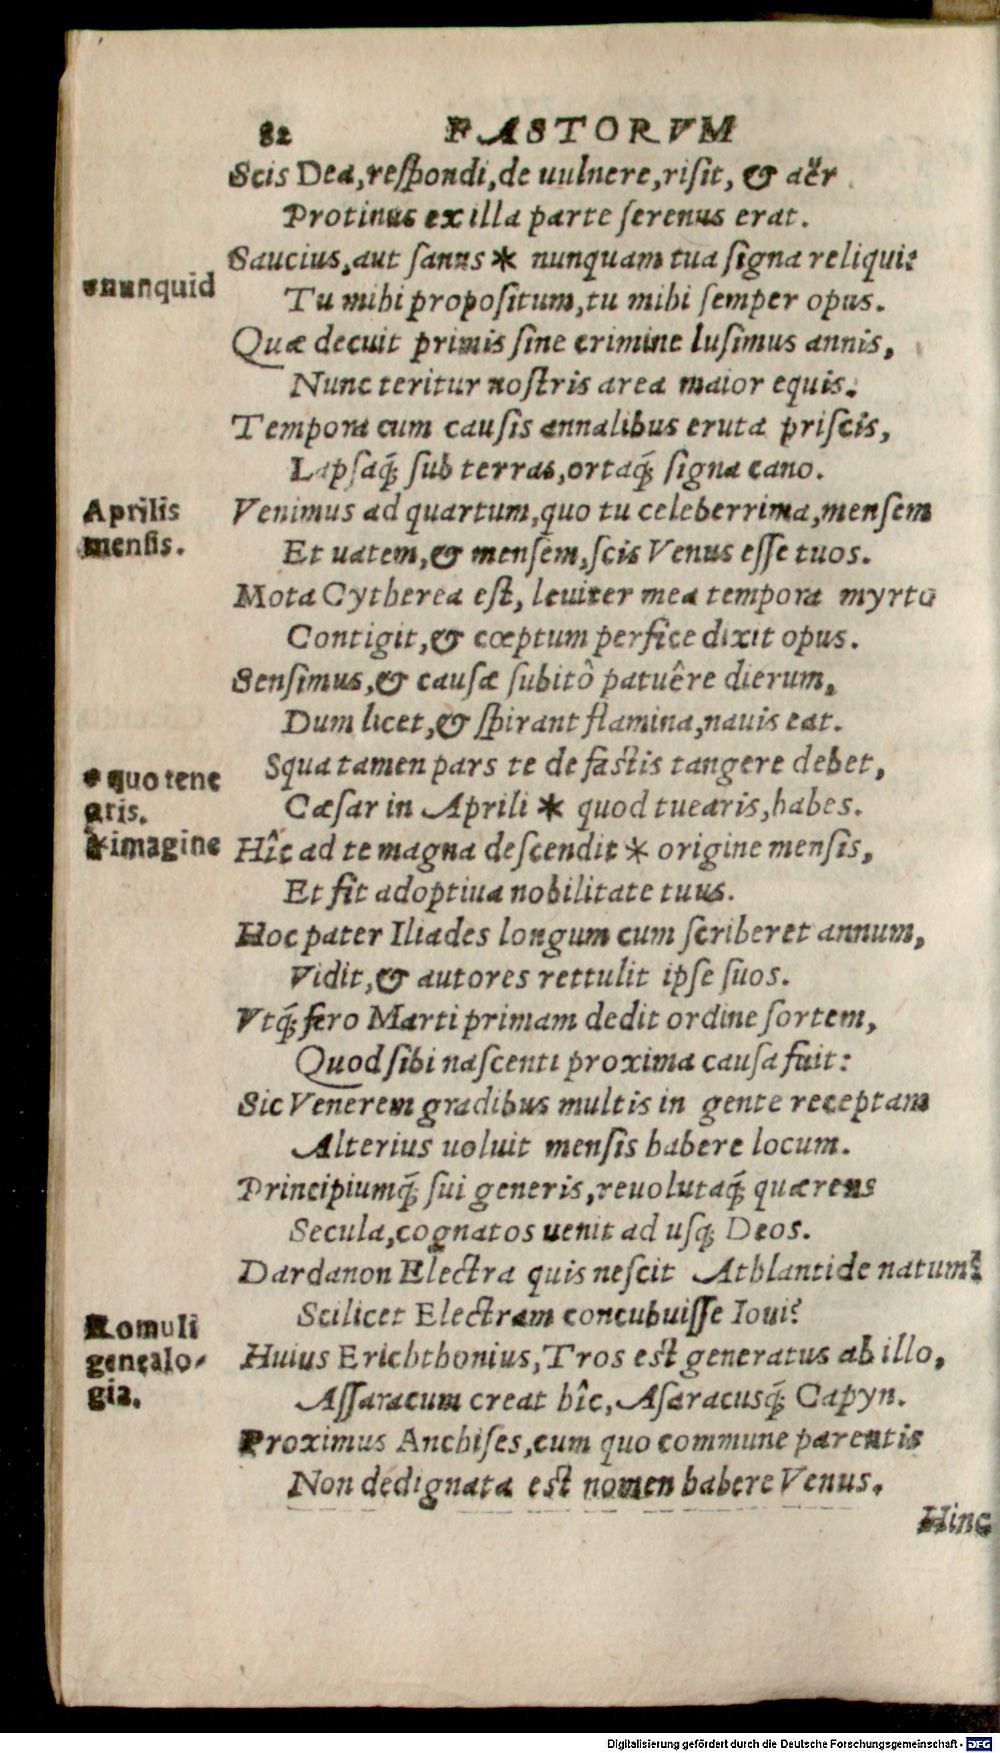 82 FASTORVM
Scis Dea,respondi,de uulnere,risit, & aër
Protinus ex illa parte serenus erat.
Saucius,aut sanus * nunquam tua signa reliqui?
*nunquid
Tu mihi propositum,tu mihi semper opus.
Quæ decuit primis sine crimine lusimus annis,
Nunc teritur nostris area maior equis.
Tempora cum causis annalibus eruta priscis,
Lapsaq́; sub terras,ortaq́; signa cano.
Aprilis
mensis.
Venimus ad quartum,quo tu celeberrima,mensem
Et uatem,& mensem,scis Venus esse tuos.
Mota Cytherea est, leuiter mea tempora myrto
Contigit,& cœptum perfice dixit opus.
Sensimus,& causæ subitò patuêre dierum,
Dum licet,& spirant flamina,nauis eat.
Squa tamen pars te de fastis tangere debet,
* quo tene
aris.
Cæsar in Aprili * quod tuearis,habes.
*imagine
Hîc ad te magna descendit * origine mensis,
Et fit adoptiua nobilitate tuus.
Hoc pater Iliades longum cum scriberet annum,
Vidit,& autores rettulit ipse suos.
Vtq́; fero Marti primam dedit ordine sortem,
Quod sibi nascenti proxima causa fuit:
Sic Venerem gradibus multis in gente receptam
Alterius uoluit mensis habere locum.
Principiumq́; sui generis,reuolutaq́; quærens
Secula,cognatos uenit ad usq; Deos.
Dardanon Electra quis nescit Athlantide natum?
Scilicet Electram concubuisse Ioui?
Romuli
genealo-
gia.
Huius Erichthonius,Tros est generatus ab illo,
Assaracum creat hîc,Asaracusq́; Capyn.
Proximus Anchises,cum quo commune parentis
Non dedignata est nomen habere Venus.
Hinc
Digitalisierung gefördert durch die Deutsche Forschungsgemeinschaft - DFG